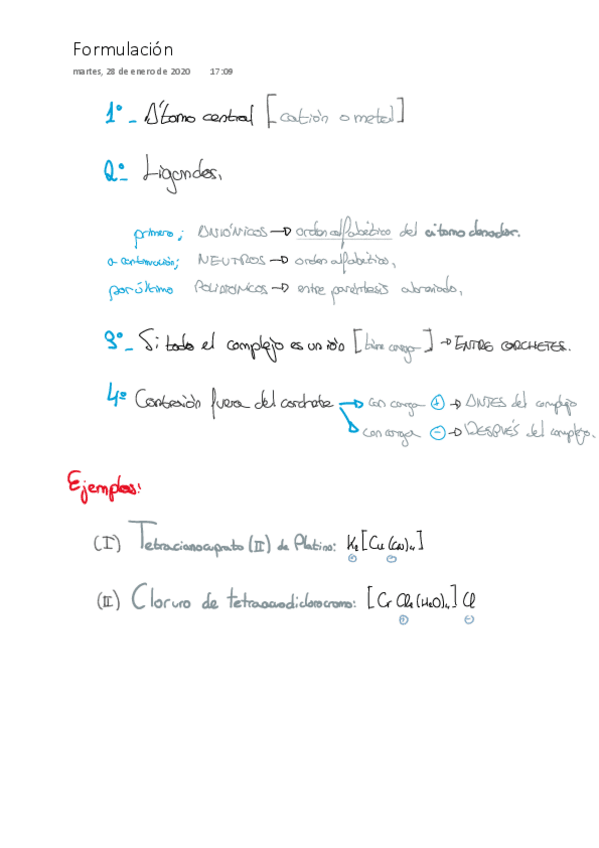 Formulación
martes, 28 de enero de 2020 17:09
1º_ Átomo central [catión o metal]
2º_ Ligandos.
primero; ANIÓNICOS → orden alfabético del átomo donador.
a continuación; NEUTROS → orden alfabético,
por último POLIATÓMICOS → entre paréntesis abreviado,
3º_ Si todo el complejo es un ión [tiene carga] → ENTRE CORCHETES.
4º Contraión fuera del corchete → con carga + → ANTES del complejo
con carga - → DESPUÉS del complejo.
Ejemplos:
(I) Tetracianocuprato (II) de Platino: K₂[Cu(CN)₄]
+ -
(II) Cloruro de tetraacuodiclorocromo: [CrCl₂(H₂O)₄]Cl
+ -